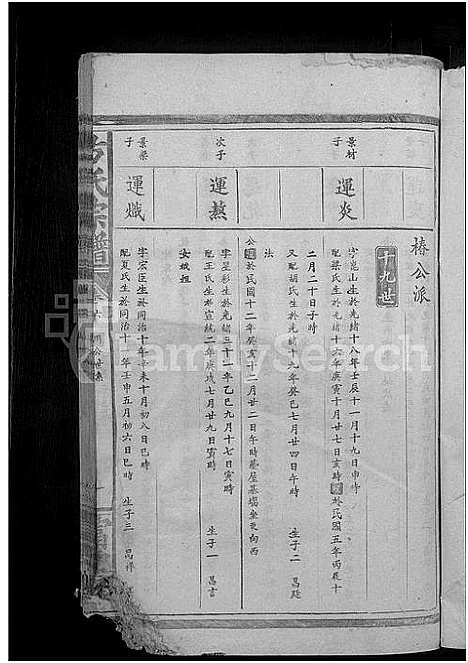 椿公派
十九世
景材
子
運炎
字崑山生於光緒十八年壬辰十一月十九日申時
配梁氏生於光緒十六年庚寅十月廿七日亥時 於民國五年丙辰十
二月二十日子時
又配胡氏生於光緒十九年癸巳七月廿四日午時 生子二 昌
法
公 於民國十二年癸亥十二月廿二日午時 屋基 坐東向西
次子
運蒸
字星彩生於光緒三十一年乙巳九月十七日寅時
配王氏生於宣統二年庚戌七月廿九日寅時 生子一 昌言
女斌姮
景榮
子
運熾
字宏臣生於同治十年辛未十月初八日巳時
配夏氏生於同治十一年壬申五月初六日巳時 生子三 昌祥
方氏宗譜
FamilySearch